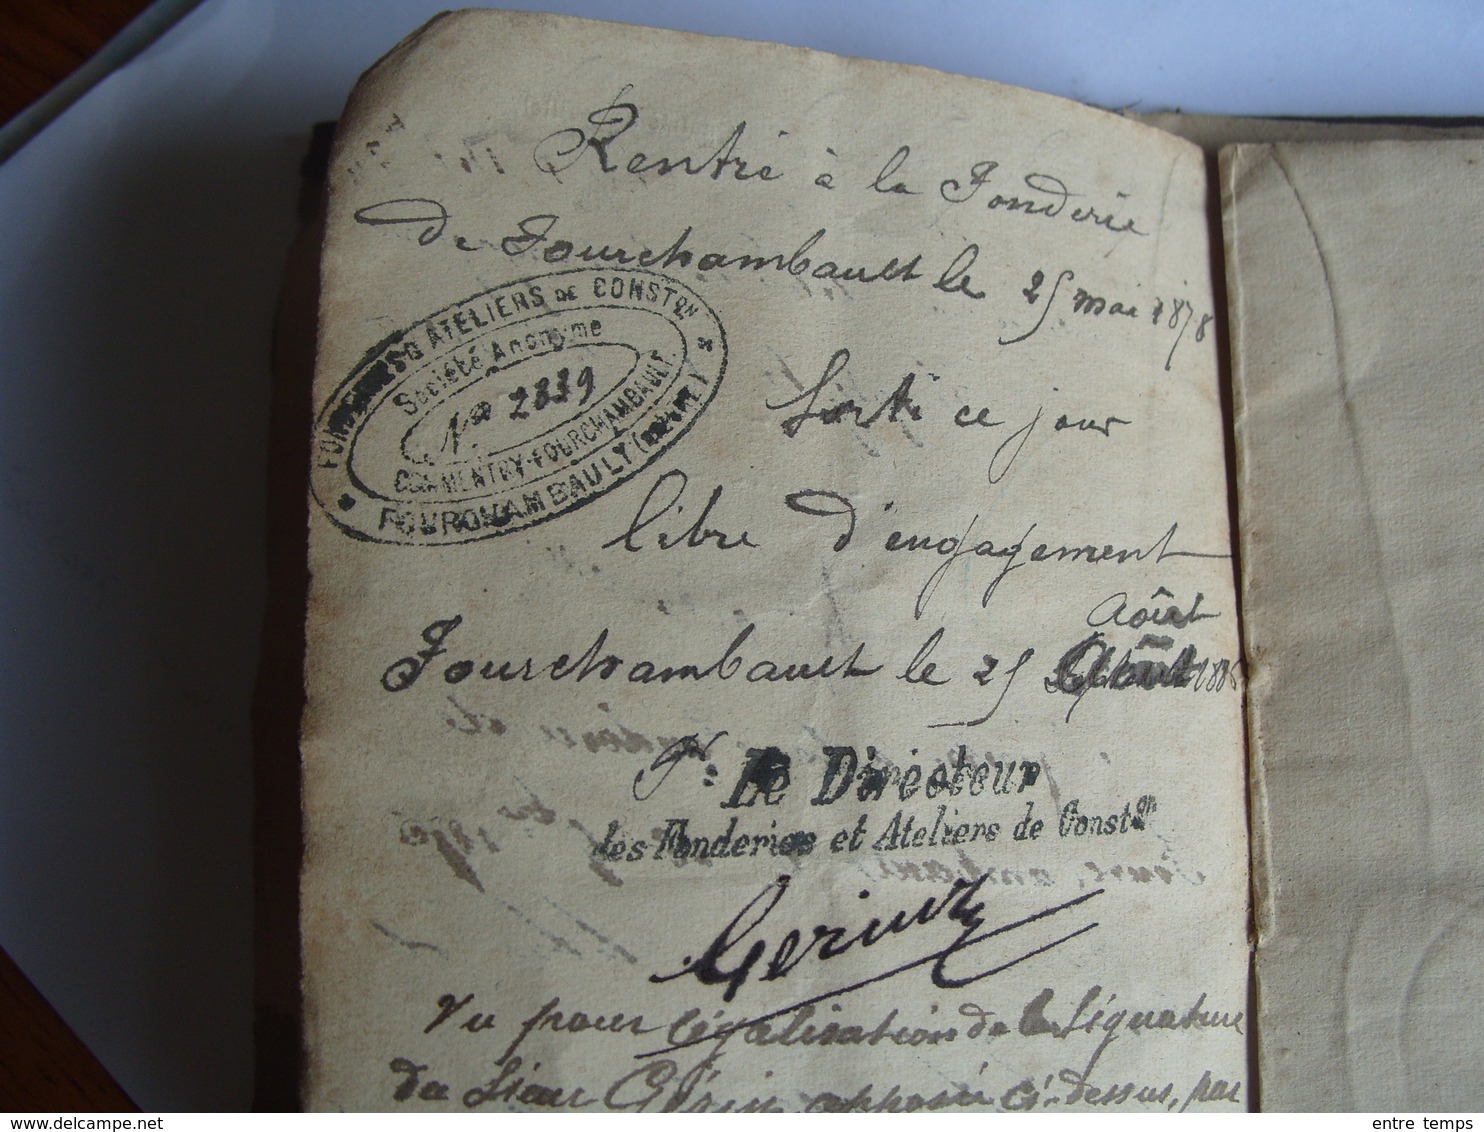 Rentré à la Fonderie
de Fourchambault le 25 mai 1878
FONDERIES & ATELIERS DE CONSTON
Société Anonyme
No 2339
COMMENTRY-FOURCHAMBAULT
FOURCHAMBAULT (NIÈVRE)
Sorti ce jour
libre d'engagement
Août
Fourchambault le 25 Août
Pr. Le Directeur
des Fonderies et Ateliers de Conston
Vu pour légalisation de la Signature
du Sieur Gérin apposée ci-dessus, par
entre temps